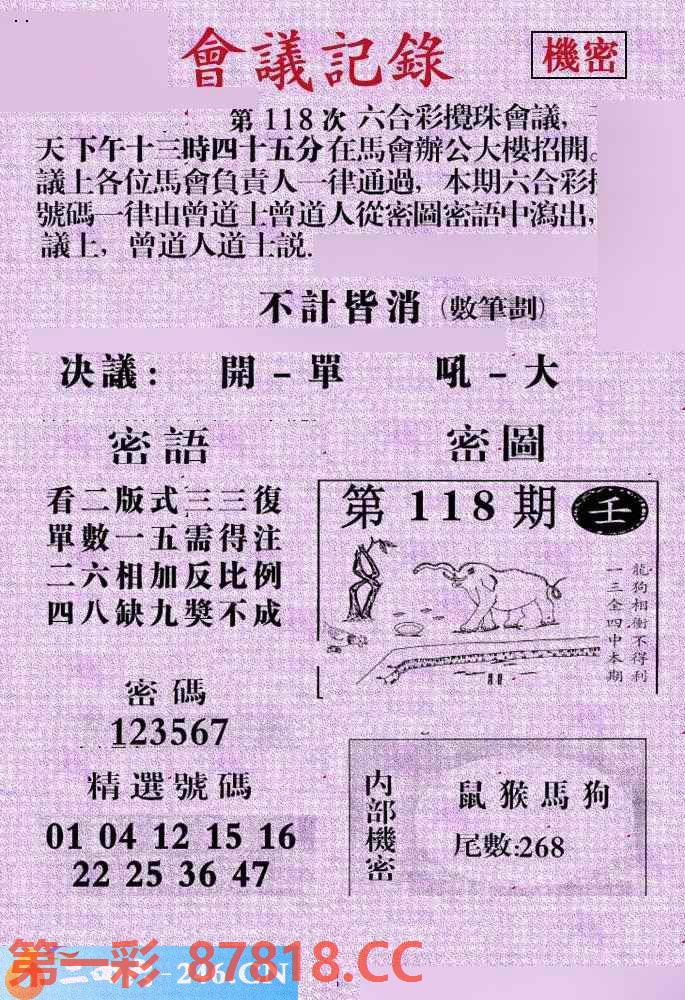 會議記錄
機密
第118次 六合彩攪珠會議,
天下午十三時四十五分在馬會辦公大樓招開。
議上各位馬會負責人一律通過, 本期六合彩
號碼一律由曾道士曾道人從密圖密語中瀉出,
議上, 曾道人道士説.
不計皆消 (數筆劃)
决議: 開-單 吼-大
密語
看二版式三三復
單數一五需得注
二六相加反比例
四八缺九獎不成
密圖
第118期 壬
龍狗相衝不得利
一三全四中本期
密碼
123567
精選號碼
01 04 12 15 16
22 25 36 47
内部機密
鼠猴馬狗
尾數:268
第一彩 87818.CC
246.CN